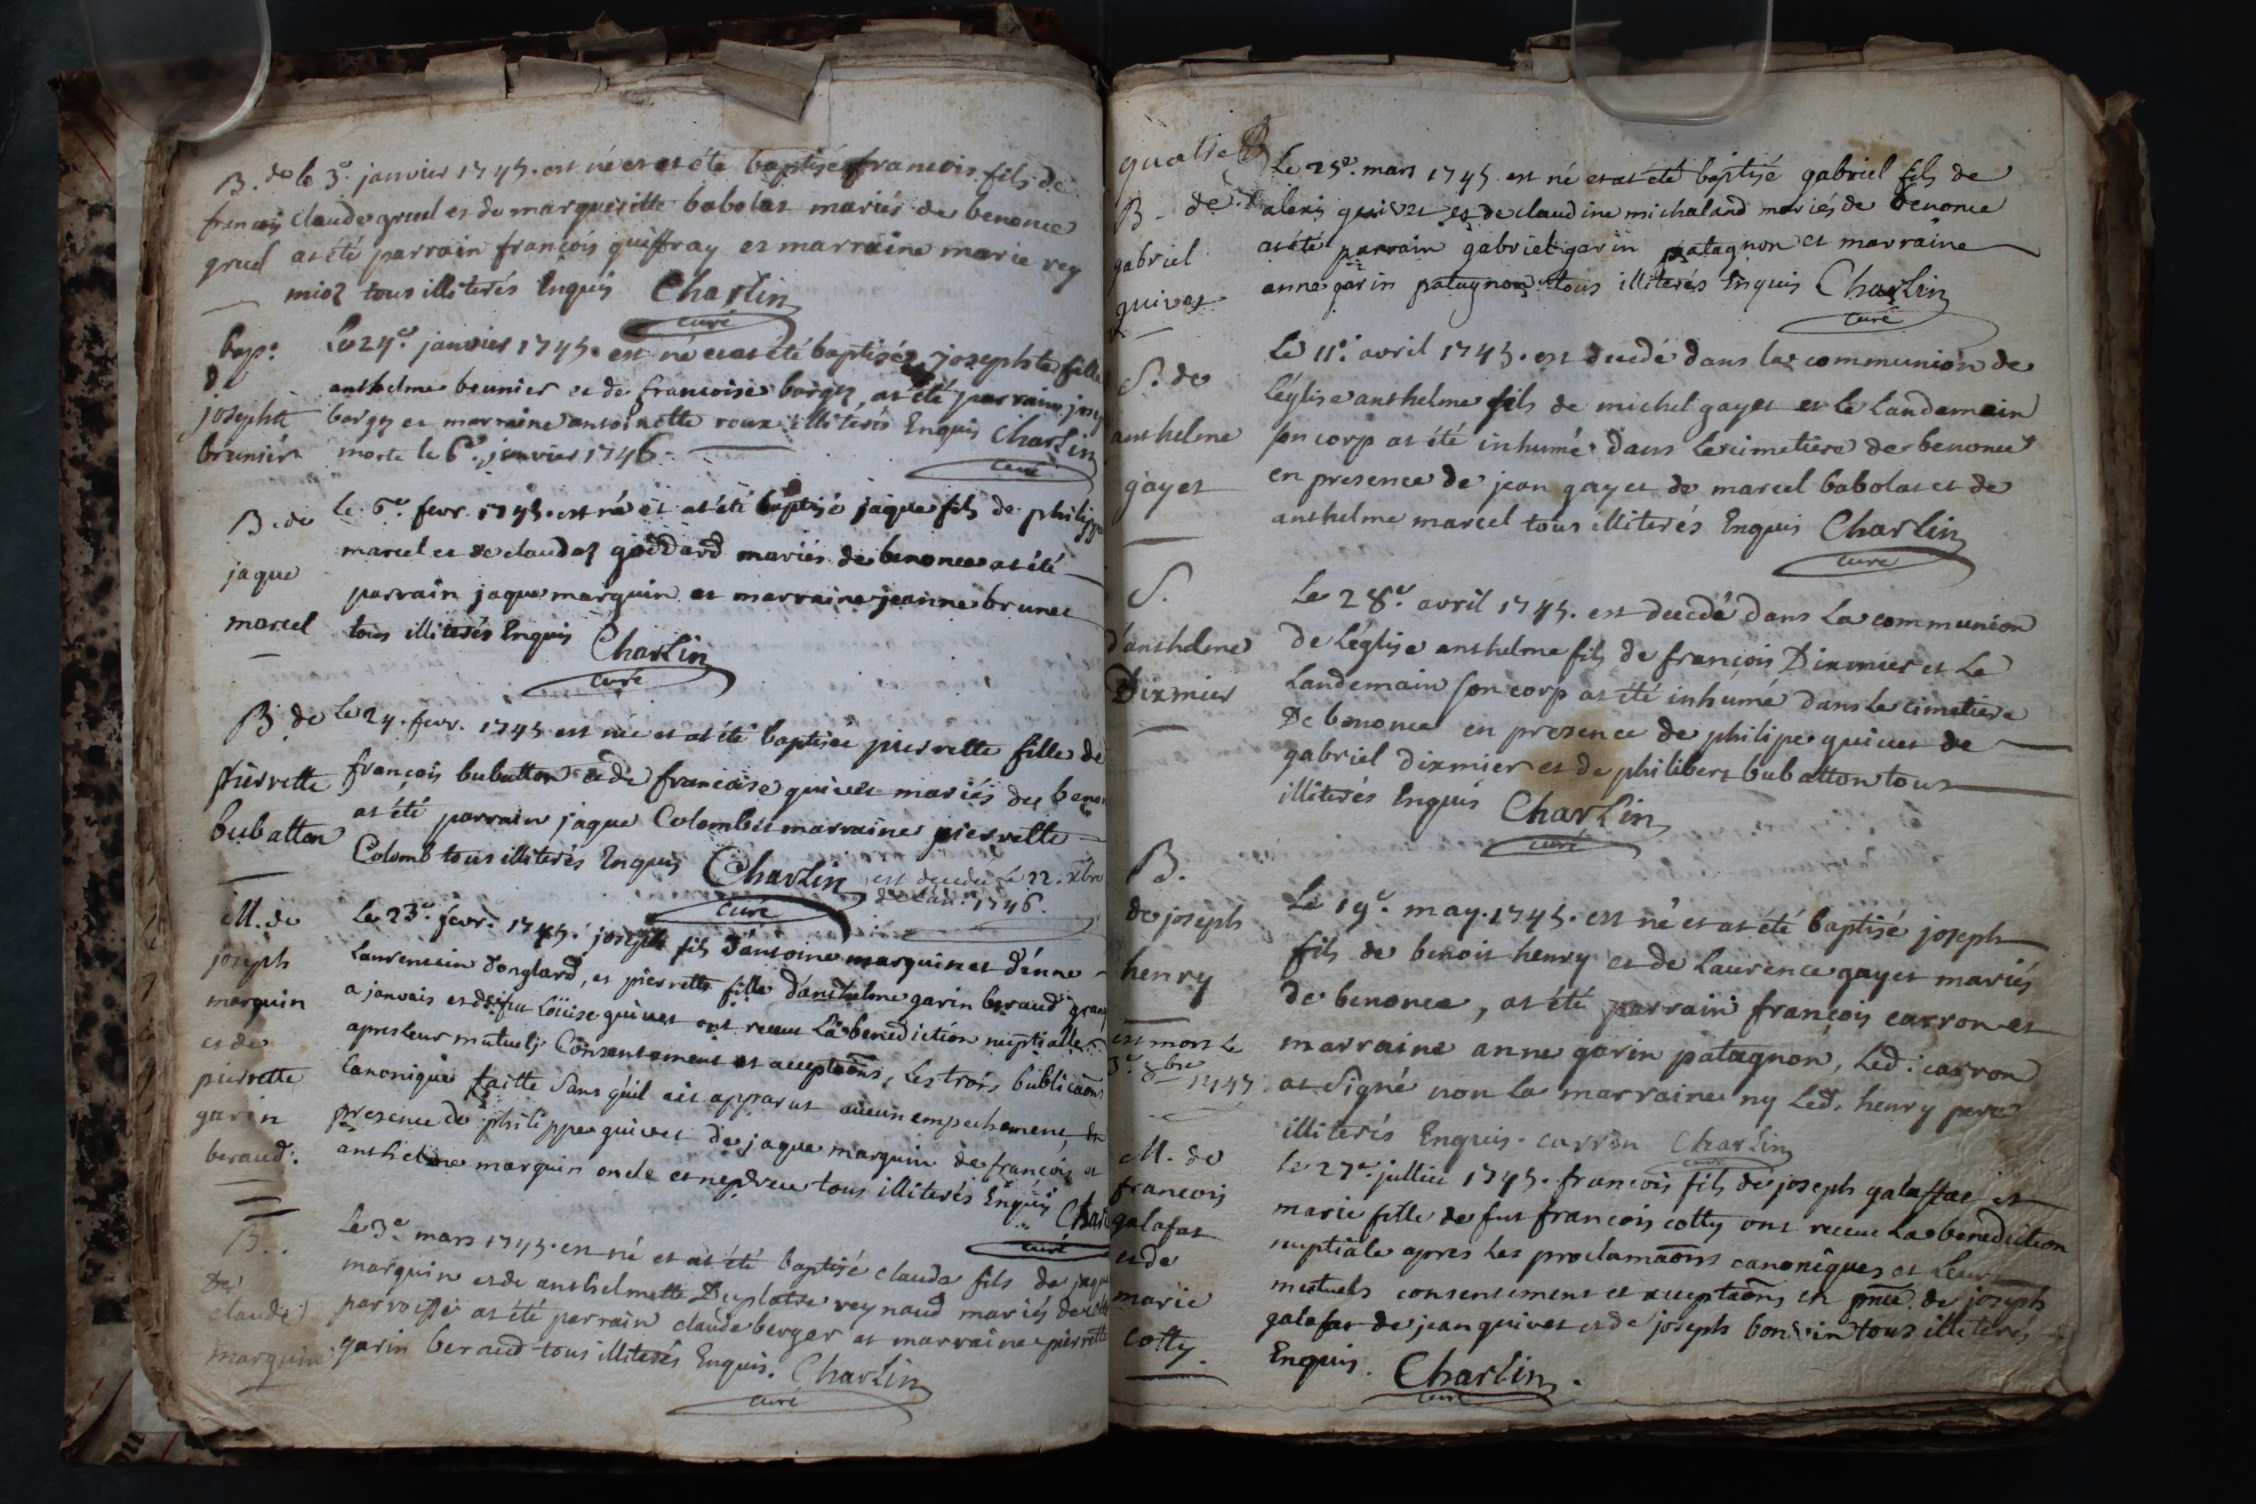 B. de le 3e. janvier 1745. est né et at été baptisé francois fils de
francois claude gruel et de margueritte babolat mariés de benonce
gruel at été parrain françois guiffray et marraine marie rey
mioz tous illiterés Enquis Charlin
curé
bap.
de
josephte
brunier
Le 24e. janvier 1745. est né et at été baptisée josephte fille
anthelme brunier et de francoise borgez, at été parrain
borgez et marraine antoinette roux illiterés Enquis Charlin
morte le 6e. janvier 1746.
curé
B. de
jaque
marcel
le 6e. fevr. 1745. est né et at été baptisé jaque fils de philippe
marcel et de claudaz goddard mariés de benonce at été
parrain jaque marguin et marraine jeanne brunet
tous illiterés Enquis Charlin
curé
B. de
pierrette
bubatton
le 24. fevr. 1745 est née et at été baptisée pierrette fille de
françois bubatton et de francoise quivet mariés de
at été parrain jaque Colomb et marraine pierrette
Colomb tous illiterés Enquis Charlin est decedee le 22. xbre
de lan 1746.
curé
M. de
joseph
marguin
et de
pierrette
garin
beraud.
Le 23e. fevr. 1745. joseph fils d'antoine marguin et d'énne
Laurensin donglard, et pierrette fille d'anthelme garin beraud
a janvais et de fut Loüise quivet ont receu La benediction nuptialle
apres leur mutuels Consentement et acceptaons, Les trois publicaons
Canonique faitte Sans qu'il ait apparut aucun empechement, en
presence de philippe quivet de jaque marguin de françois et
anthelme marguin oncle et nepveu tous illiterés Enquis
curé
B.
de
claude
marguin
Le 3e. mars 1745. est né et at été baptisé claude fils de
marguin et de anthelmette Duplatre reynaud mariés de
parroisse at été parrain claude berger et marraine pierrette
garin beraud tous illiterés Enquis. Charlin
curé
quatre
B. de
gabriel
quivet
Le 25e. mars 1745 est né et at été baptisé gabriel fils de
alexis quivet et de claudine michaland mariés de benonce
at été parrain gabriel garin patagnon et marraine
anne garin patagnon tous illiterés Enquis Charlin
curé
S. de
anthelme
gayet
Le 11e. avril 1745. est decedé dans la communion de
Léglise anthelme fils de michel gayet et le Landemain
son corp at été inhumé dans le cimetiere de benonce
en presence de jean gayet de marcel babolat et de
anthelme marcel tous illiterés Enquis Charlin
curé
S.
d'anthelme
Dixmier
Le 28e. avril 1745. est decedé dans La communion
de Léglise anthelme fils de françois Dixmier et Le
Landemain son corp at été inhumé dans le cimetiere
De benonce en presence de philipe quivet de
gabriel dixmier et de philibert bubatton tous
illiterés Enquis Charlin
curé
B.
de joseph
henry
est mort le
3e. 8bre 1747
Le 19e. may. 1745. est né et at été baptisé joseph
fils de benoit henry et de Laurence gayet mariés
de benonce, at été parrain françois carron et
marraine anne garin patagnon, Led. carron
at signé non La marraine ny Led. henry pere
illiterés Enquis. carron Charlin
curé
M. de
francois
galafat
et de
marie
cotty.
Le 27e. julliet 1745. francois fils de joseph galaffat et
marie fille de fut françois cotty ont receu La benediction
nuptiale apres Les proclamaons canoniques et Leur
mutuels consentement et acceptaons en pnce. de joseph
galafat de jean quivet et de joseph bonvin tous illiterés
Enquis. Charlin.
curé